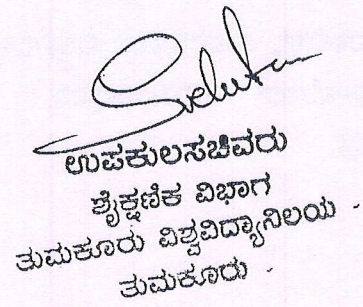 ಉಪಕುಲಸಚಿವರು
ಶೈಕ್ಷಣಿಕ ವಿಭಾಗ
ತುಮಕೂರು ವಿಶ್ವವಿದ್ಯಾನಿಲಯ .
ತುಮಕೂರು .